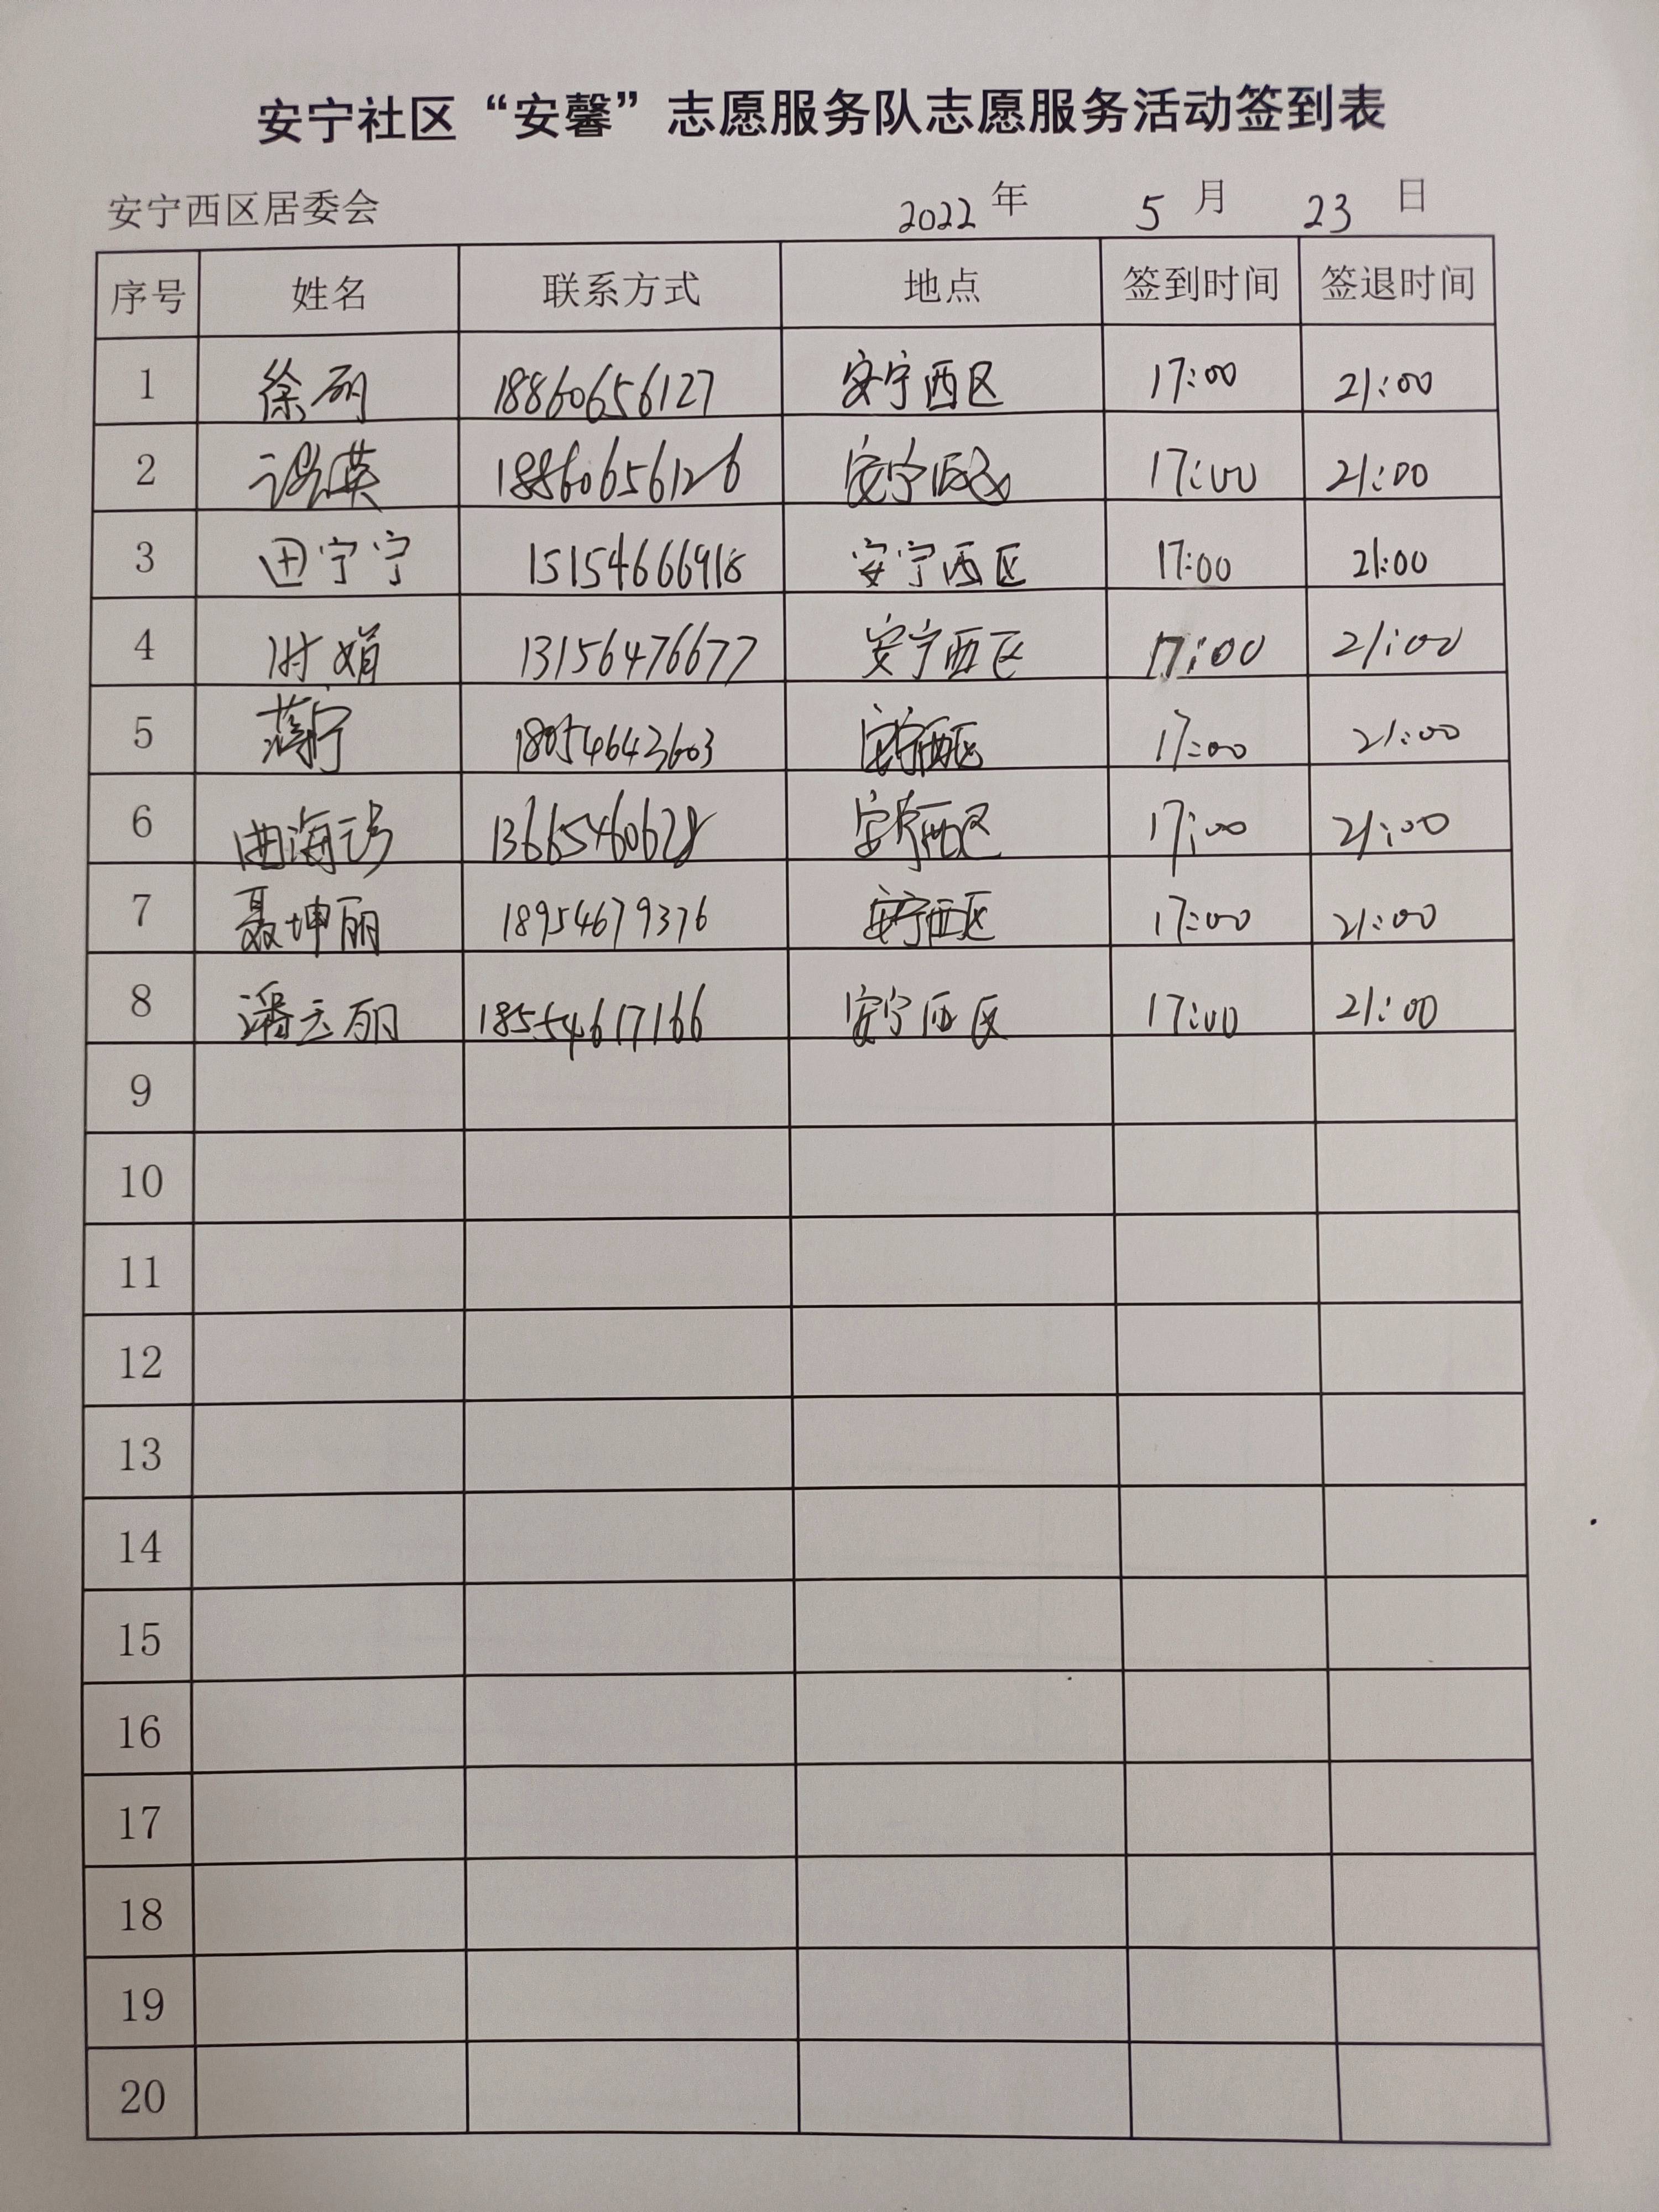 安宁社区“安馨”志愿服务队志愿服务活动签到表
安宁西区居委会 2022 年 5 月 23 日
序号 姓名 联系方式 地点 签到时间 签退时间
1 徐丽 18860656127 安宁西区 17:00 21:00
2 英 18860656126 安宁西区 17:00 21:00
3 田宁宁 15154666918 安宁西区 17:00 21:00
4 时娟 13156476677 安宁西区 17:00 21:00
5 蒋宁 18054643603 安宁西区 17:00 21:00
6 曲海 13665460628 安宁西区 17:00 21:00
7 聂坤丽 18954679376 安宁西区 17:00 21:00
8 潘云丽 18554617166 安宁西区 17:00 21:00
9
10
11
12
13
14
15
16
17
18
19
20